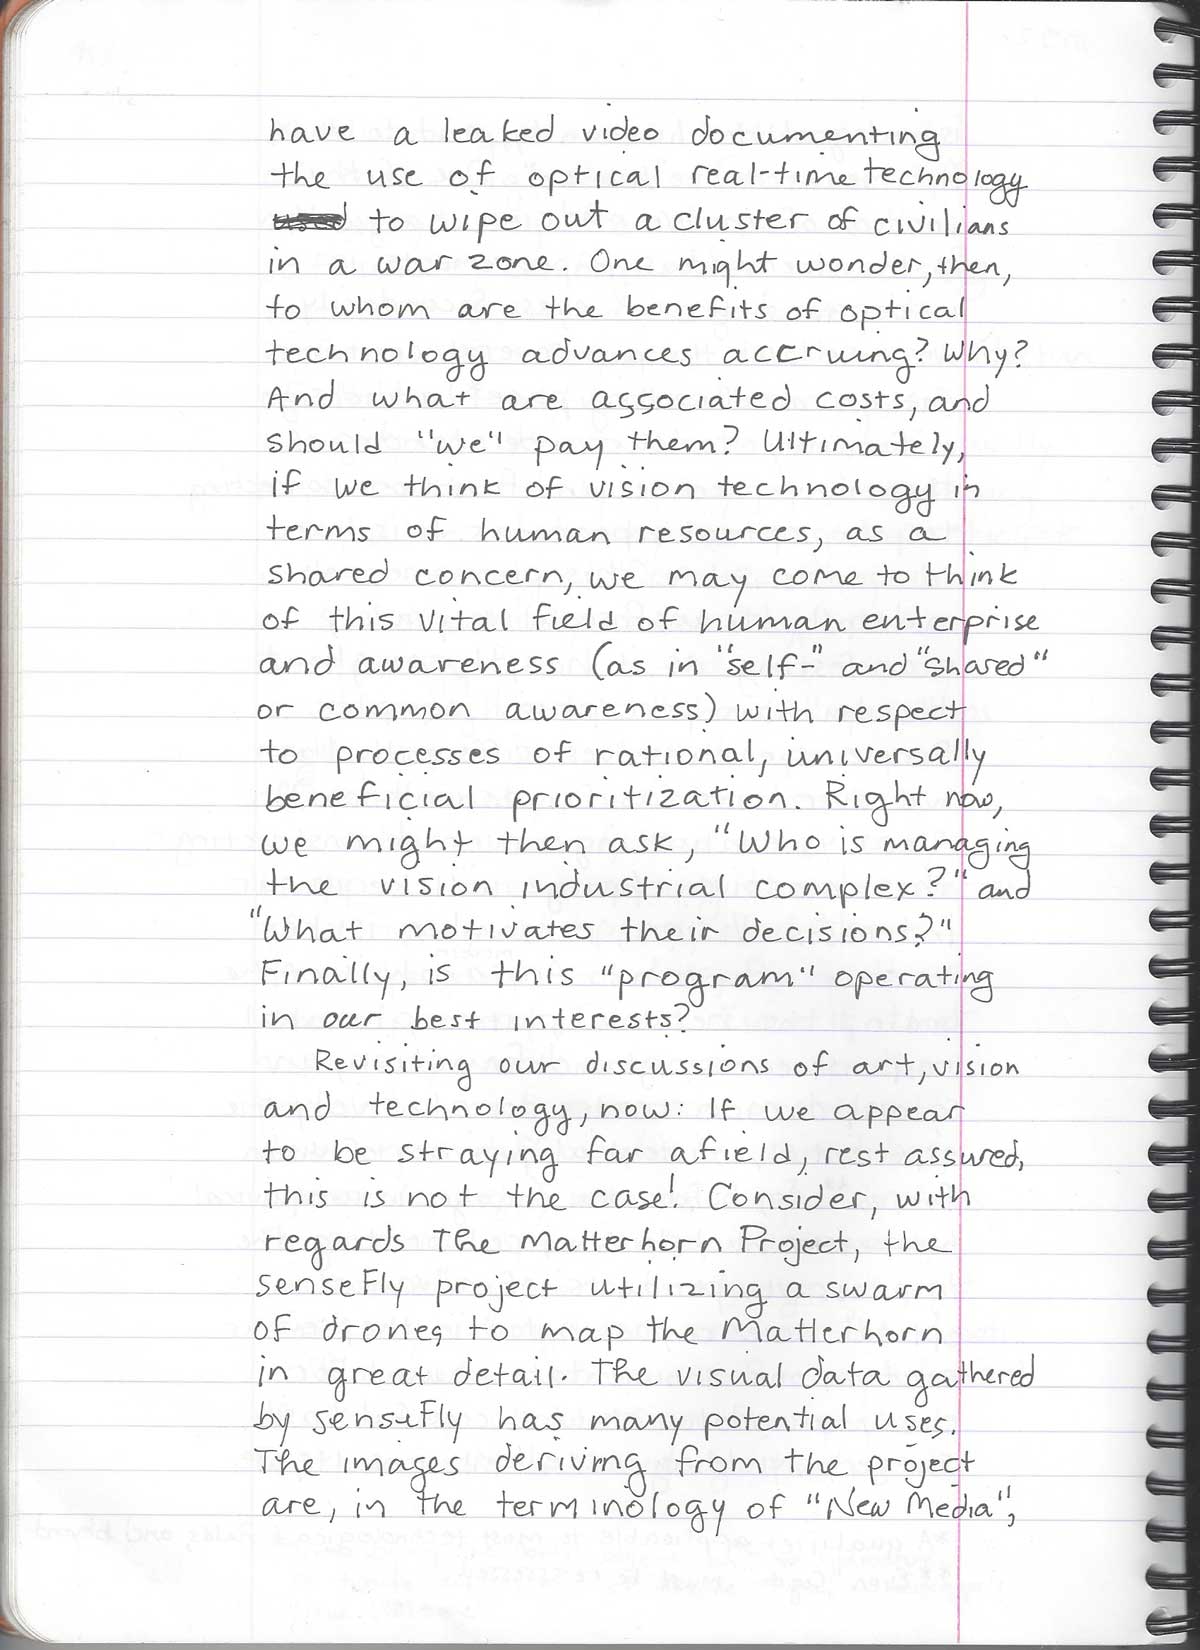 have a leaked video documenting
the use of optical real-time technology
to wipe out a cluster of civilians
in a war zone. One might wonder, then,
to whom are the benefits of optical
technology advances accruing? Why?
And what are associated costs, and
should "we" pay them? Ultimately,
if we think of vision technology in
terms of human resources, as a
shared concern, we may come to think
of this vital field of human enterprise
and awareness (as in "self-" and "shared"
or common awareness) with respect
to processes of rational, universally
beneficial prioritization. Right now,
we might then ask, "Who is managing
the vision industrial complex?" and
"What motivates their decisions?"
Finally, is this "program" operating
in our best interests?
Revisiting our discussions of art, vision
and technology, now: If we appear
to be straying far afield, rest assured,
this is not the case! Consider, with
regards The Matterhorn Project, the
senseFly project utilizing a swarm
of drones to map the Matterhorn
in great detail. The visual data gathered
by senseFly has many potential uses.
The images deriving from the project
are, in the terminology of "New Media",